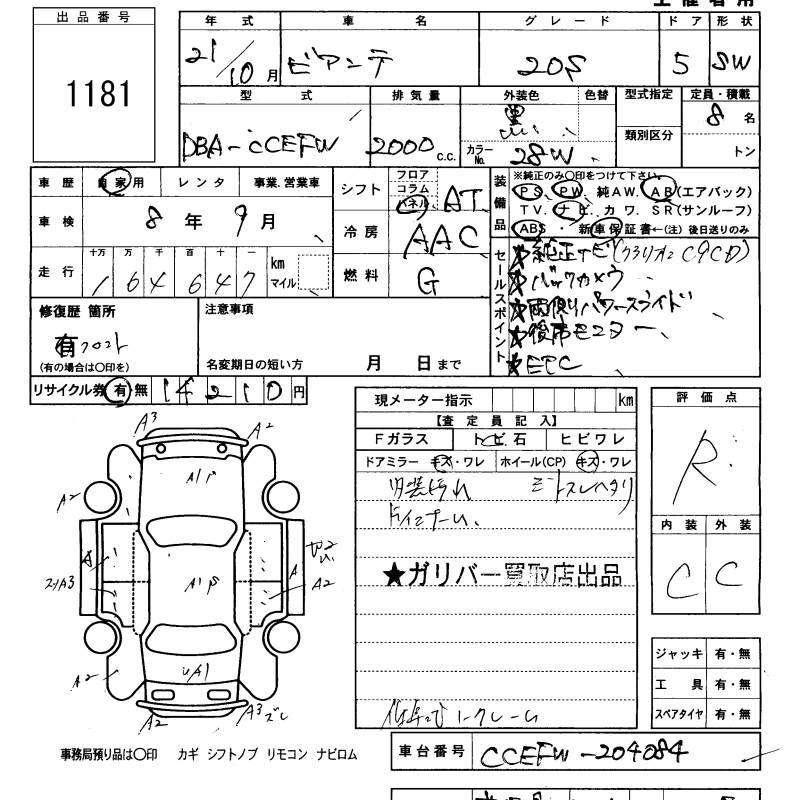 出品番号
1181
年式 車名 グレード ドア 形状
21/10月 ビアンテ 20S 5 SW
型式 排気量 外装色 色替 型式指定 定員・積載
DBA-CCEFW 2000c.c. 黒 8名
カラーNo. 28W 類別区分 トン
車歴 自家用 レンタ 事業.営業車
車検 8年9月
走行 十万 万 千 百 十 一
164647 km マイル
シフト フロア コラム パネル AT
冷房 AAC
燃料 G
装備品
※純正のみ〇印をつけて下さい。
PS. PW. 純AW. AB(エアバック)
TV. ナビ. カワ. SR(サンルーフ)
ABS ・ 新車保証書←(注)後日送りのみ
セールスポイント
純正ナビ(クラリオン C9CD)
バックカメラ
両側パワースライド
後席モニター
ETC
修復歴 箇所
有 フロント
(有の場合は〇印を)
注意事項
名変期日の短い方 月 日まで
リサイクル券 有 無 14210円
現メーター指示 km
【査定員記入】
Fガラス トビ石 ヒビワレ
ドアミラー キズ・ワレ ホイール(CP) キズ・ワレ
★ガリバー買取店出品
評価点
R
内装 外装
C C
ジャッキ 有・無
工具 有・無
スペアタイヤ 有・無
A3 A2
A1 P
A2
A
スリA3 A1 P A A2
A1
A2
A2 A3 ズレ
事務局預り品は〇印 カギ シフトノブ リモコン ナビロム
車台番号 CCEFW-204084